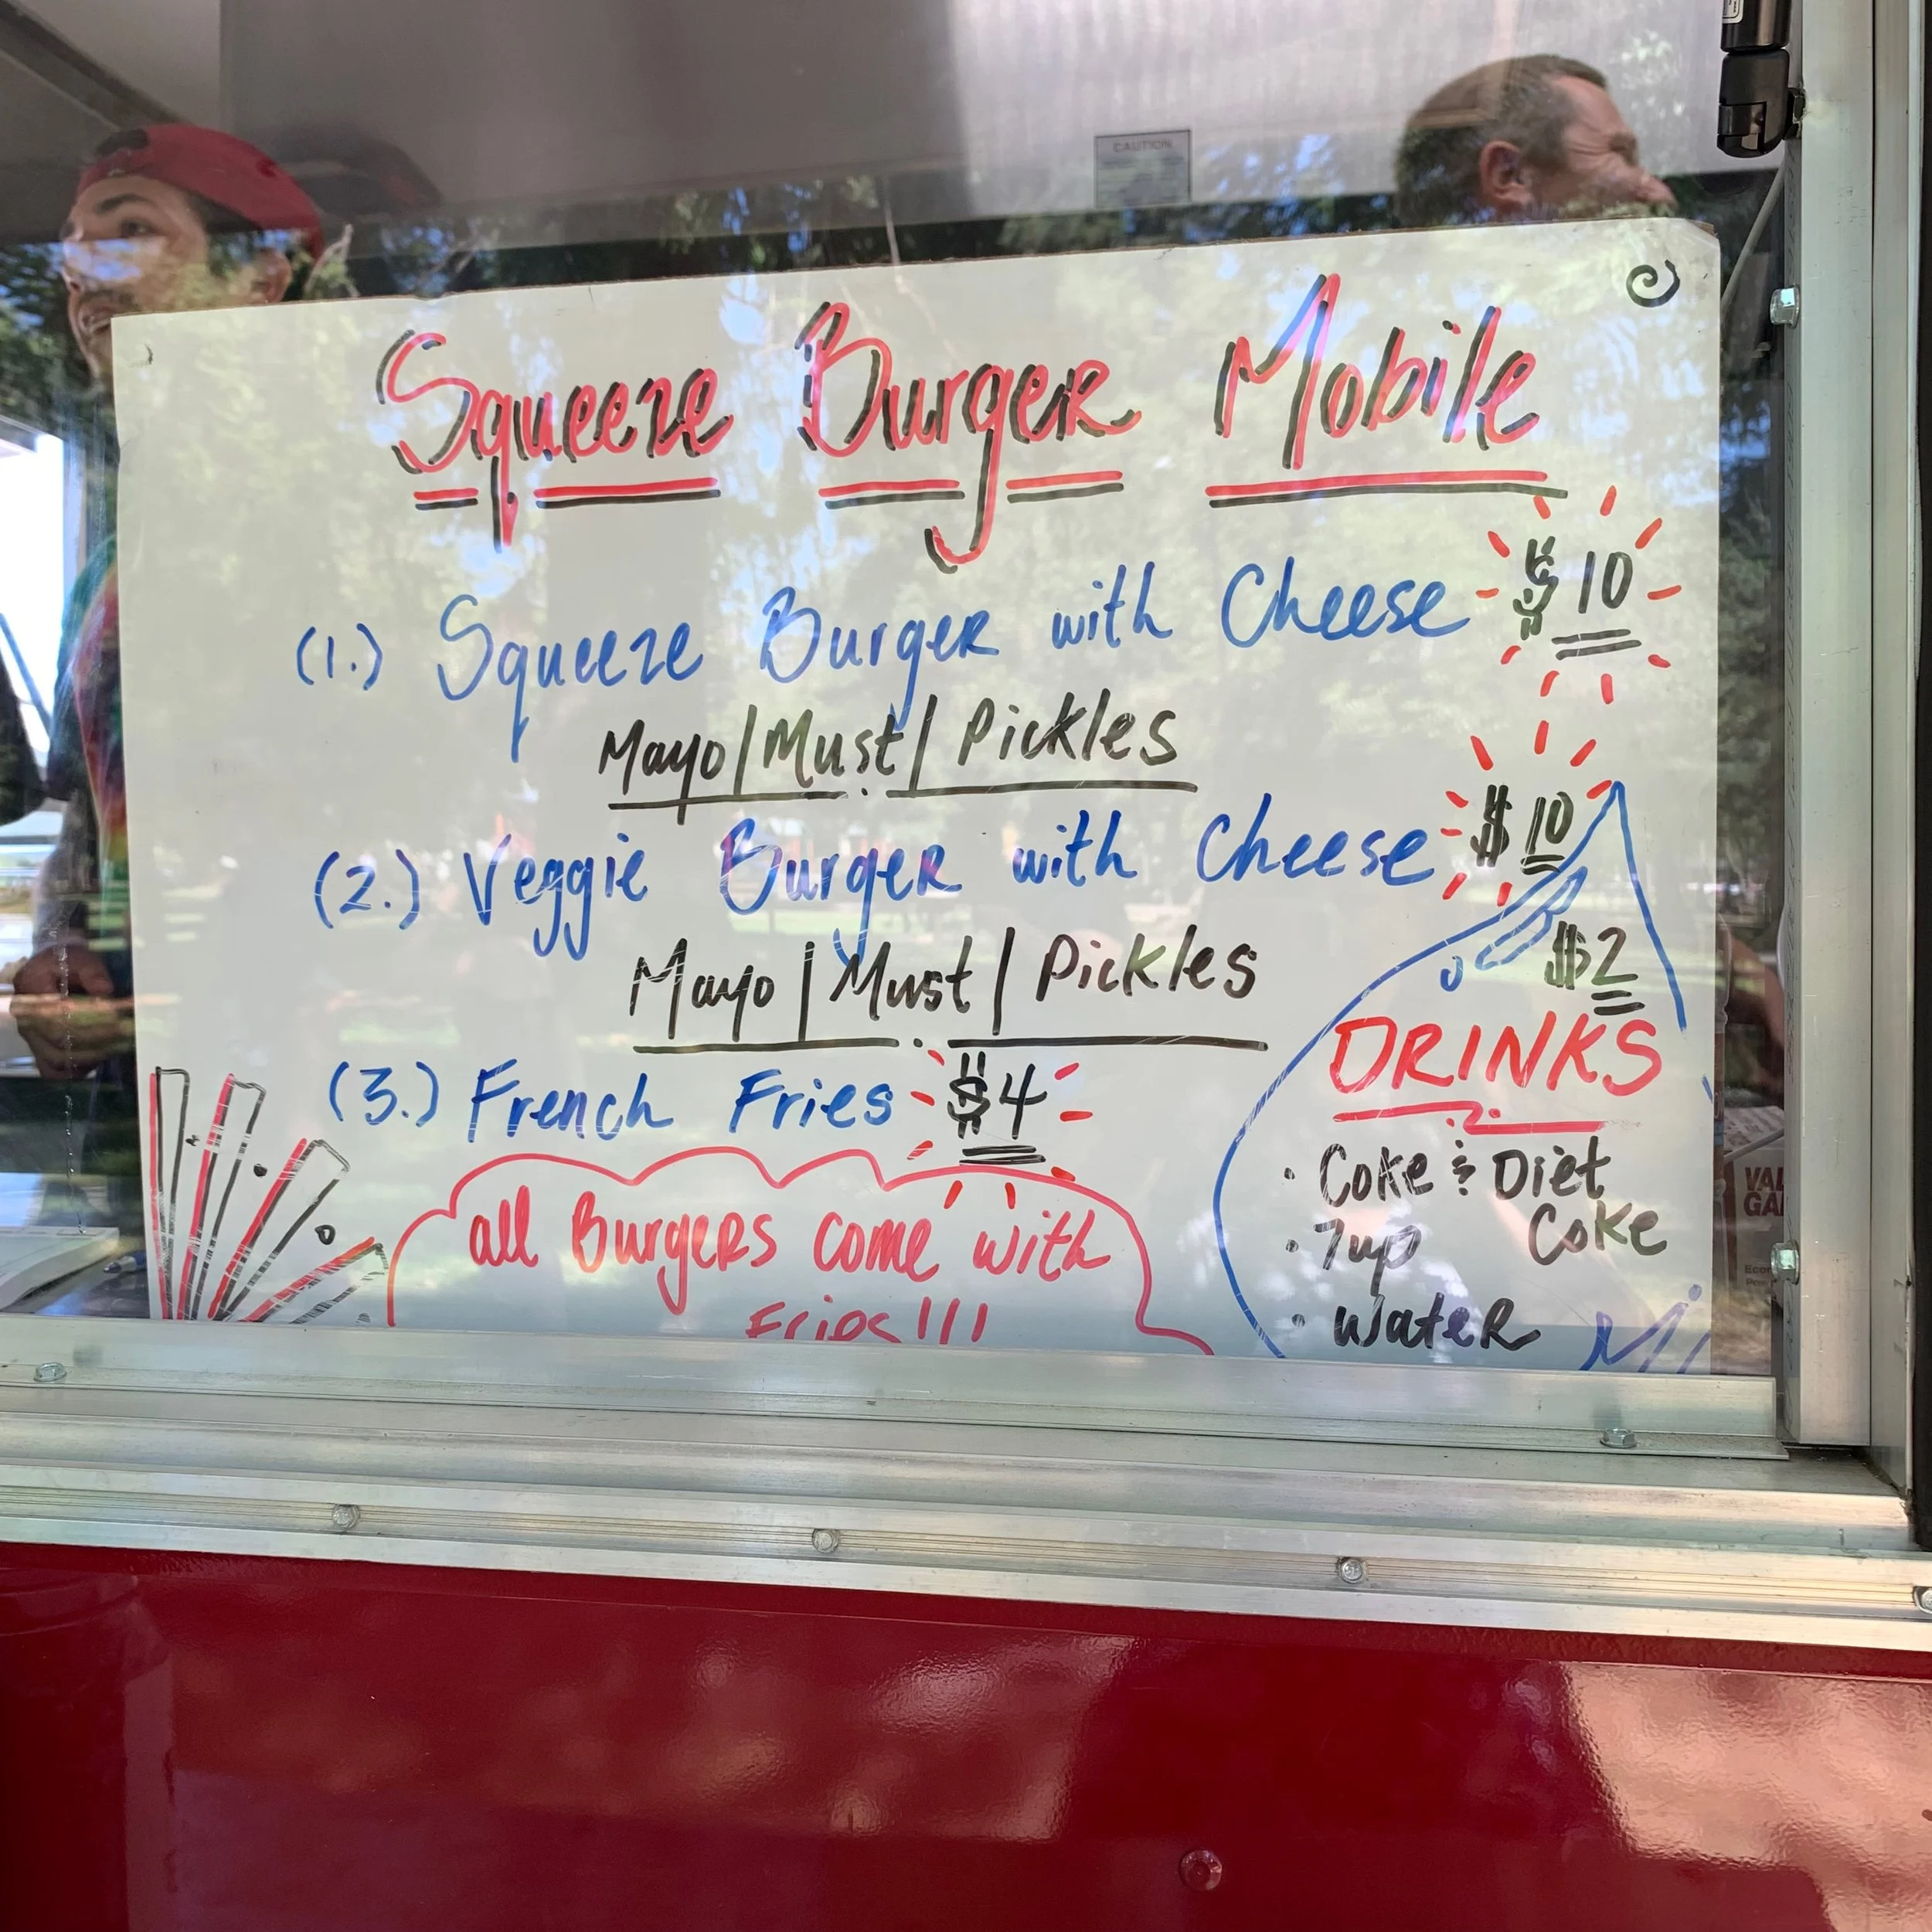 CAUTION
Squeeze Burger Mobile
(1.) Squeeze Burger with Cheese $10
Mayo | Must | Pickles
(2.) Veggie Burger with Cheese $10
Mayo | Must. | Pickles
(3.) French Fries $4
all Burgers come with
Fries!!!
$2
DRINKS
· Coke & Diet Coke
· 7up
· Water